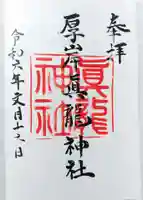 奉拝
厚岸眞龍神社
眞龍
神社
令和六年文月十六日